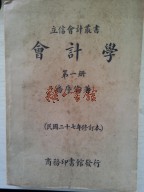 立信會計叢書
會計學
第一冊
潘序倫著
(民國三十七年修訂本)
商務印書館發行